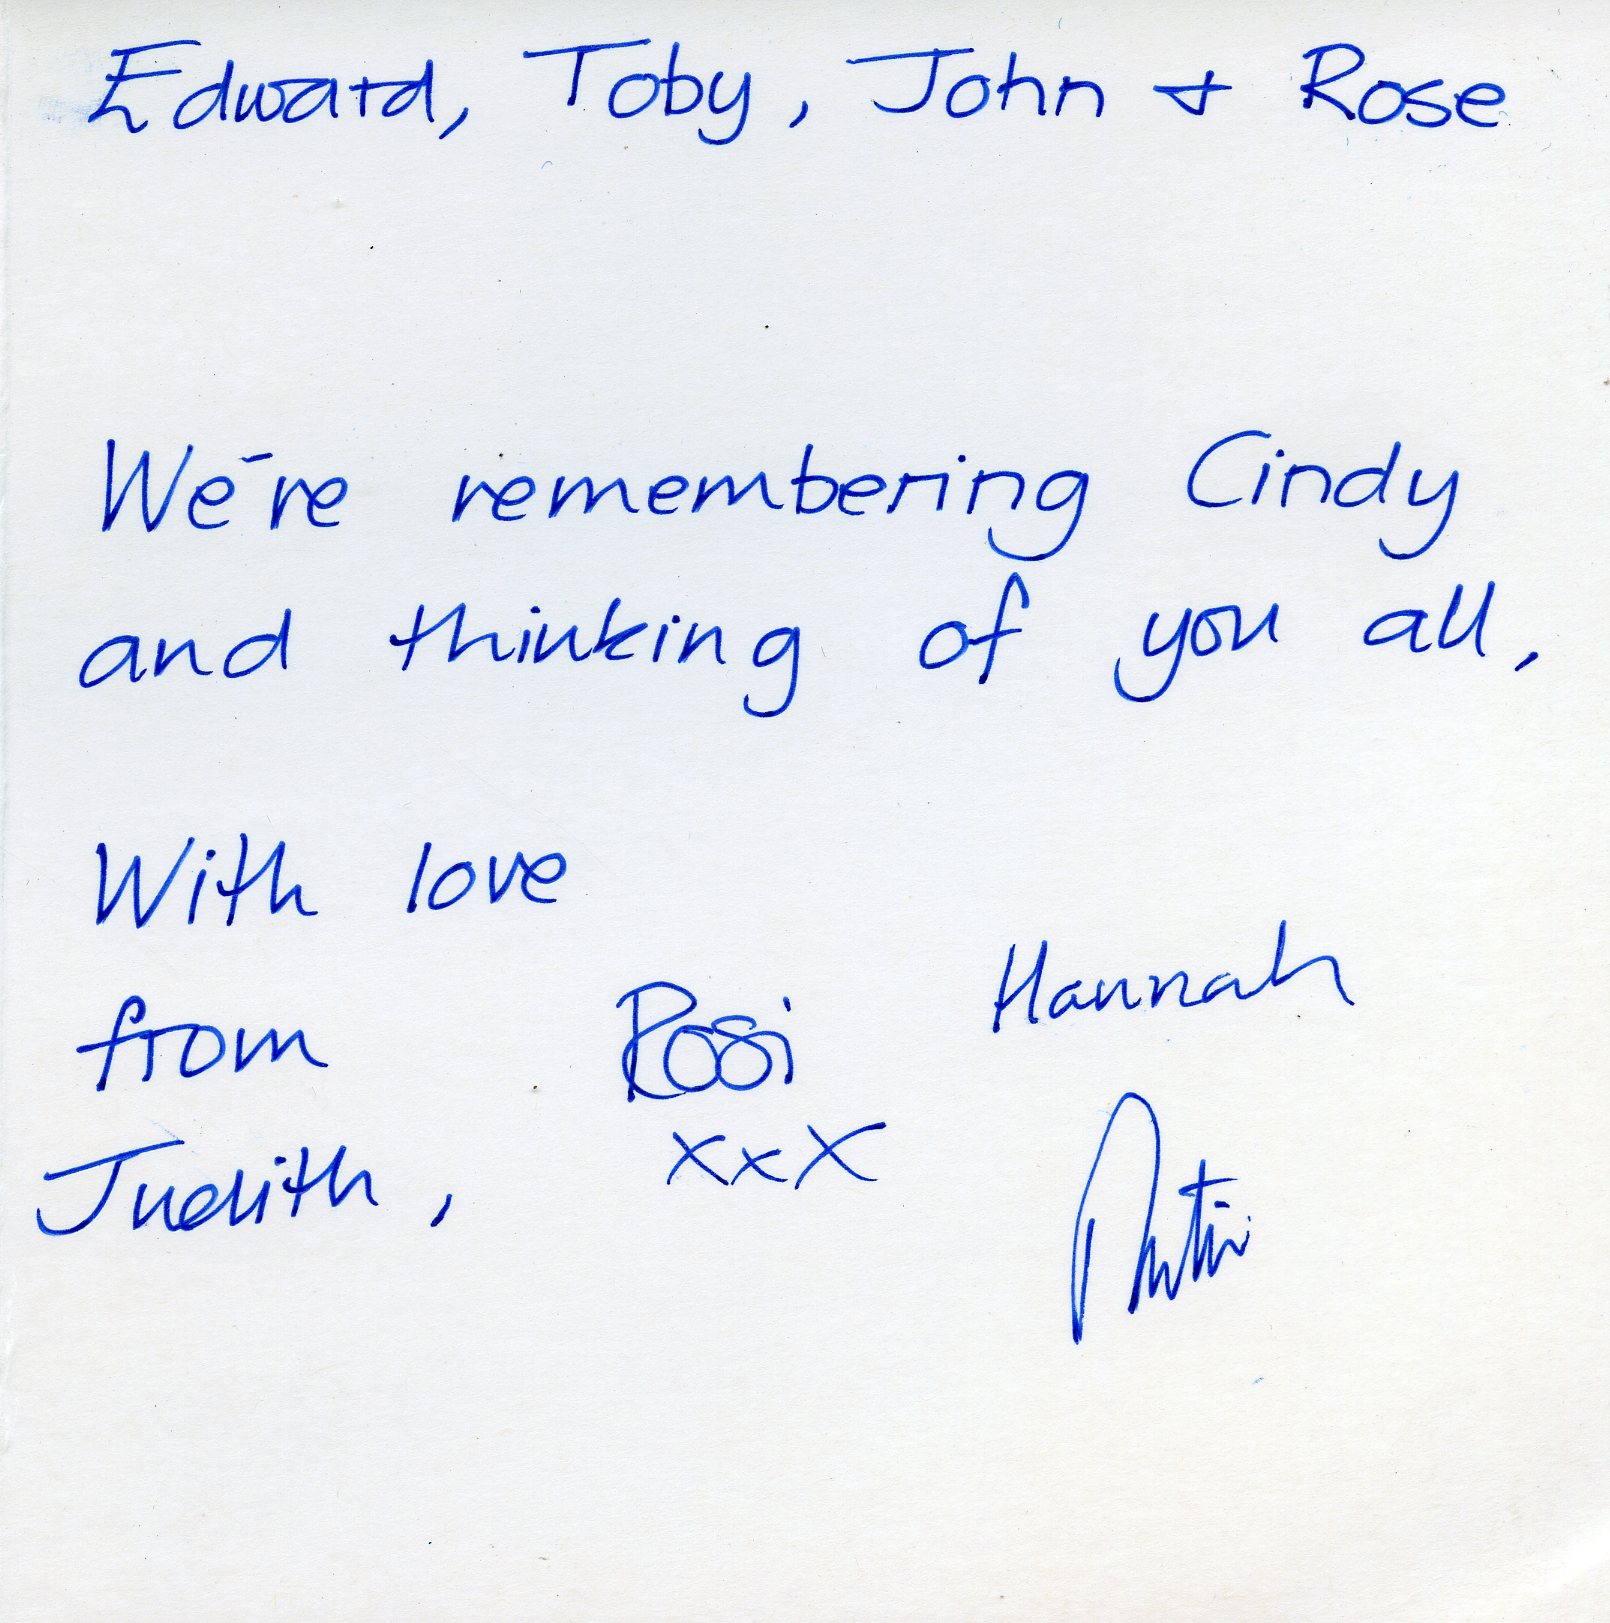 Edward, Toby, John + Rose
We're remembering Cindy
and thinking of you all,
With love
from
Judith,
Rosi
xxx
Hannah